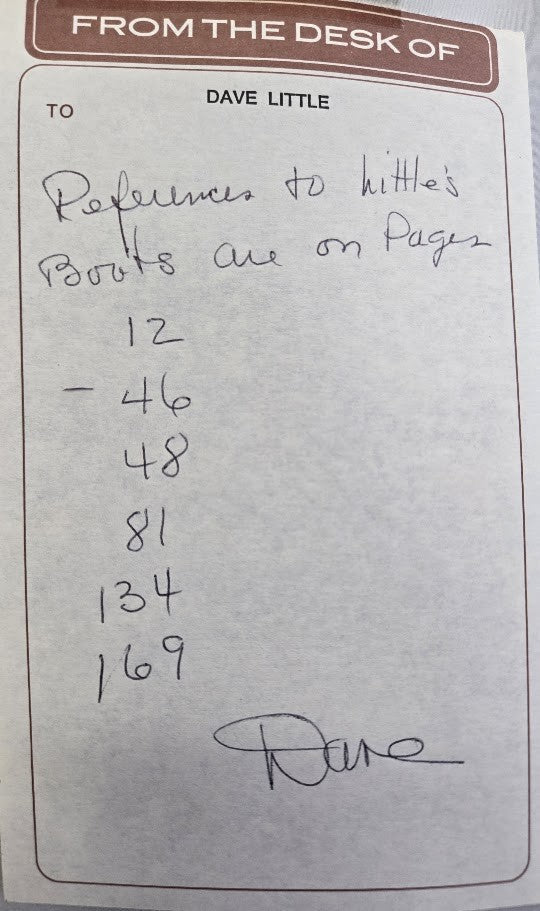 FROM THE DESK OF
DAVE LITTLE
TO
References to Little's
Boots are on Pages
12
- 46
48
81
134
169
Dave